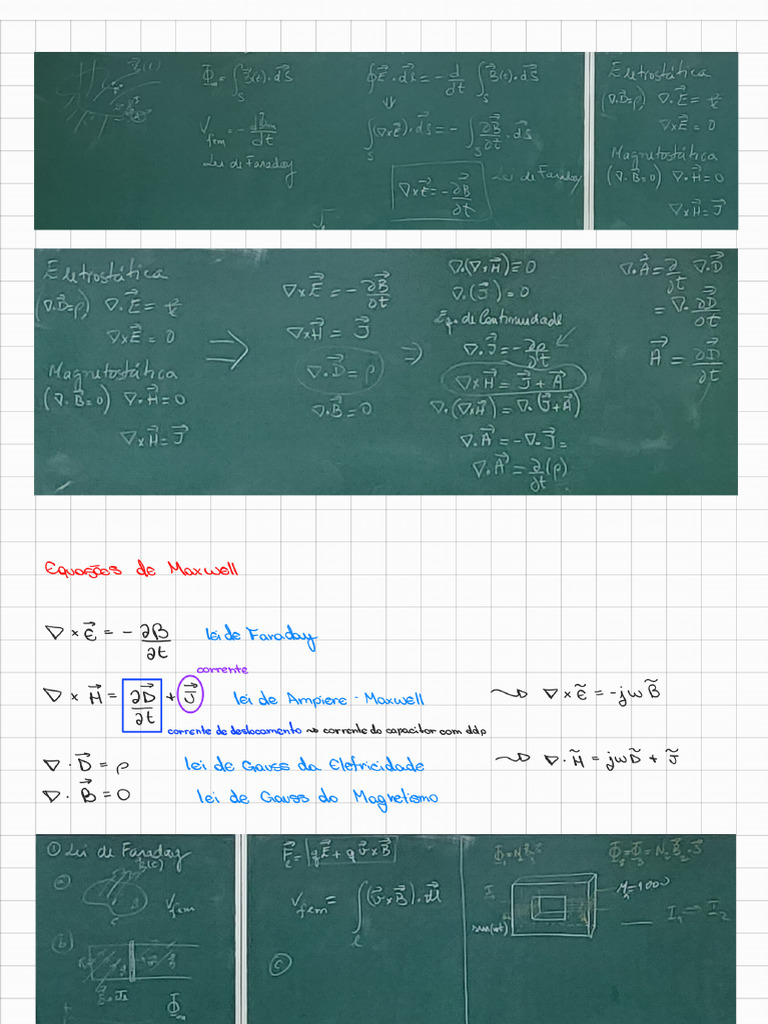 B(t)
Φₘ = ∫_S B⃗(t)·dS⃗
V_fem = - dΦₘ/dt
Lei de Faraday
∮E⃗·dS⃗ = - d/dt ∫_S B⃗(t)·dS⃗
⇓
∫_S (∇×E⃗)·dS⃗ = - ∫_S ∂B⃗/∂t · dS⃗
∇×E⃗ = - ∂B⃗/∂t
Lei de Faraday
Eletrostática
(∇·D⃗=ρ) ∇·E⃗ =
∇×E⃗ = 0
Magnetostática
(∇·B⃗=0) ∇·H⃗=0
∇×H⃗=J⃗
Eletrostática
(∇·D⃗=ρ) ∇·E⃗ =
∇×E⃗ = 0
Magnetostática
(∇·B⃗=0) ∇·H⃗=0
∇×H⃗=J⃗
⇒
∇×E⃗ = - ∂B⃗/∂t
∇×H⃗ = J⃗
∇·D⃗ = ρ
∇·B⃗=0
⇒
∇·(∇×H⃗) = 0
∇·(J⃗) = 0
Eq. de Continuidade
∇·J⃗ = - ∂ρ/∂t
∇×H⃗ = J⃗ + A⃗
∇·(∇×H⃗) = ∇·(J⃗+A⃗)
∇·A⃗ = -∇·J⃗ =
∇·A⃗ = ∂/∂t (ρ)
∇·A⃗ = ∂/∂t ∇·D⃗
= ∇·∂D⃗/∂t
A⃗ = ∂D⃗/∂t
Equações de Maxwell
∇ × E⃗ = - ∂B/∂t lei de Faraday
corrente
∇ × H⃗ = ∂D⃗/∂t + J⃗ lei de Ampiere - Maxwell
⇝ ∇ × ẽ = -jw B̃
corrente de deslocamento ⇝ corrente do capacitor com ddp
∇ · D⃗ = ρ lei de Gauss da Eletricidade
⇝ ∇ · H̃ = jw D̃ + J̃
∇ · B⃗ = 0 lei de Gauss do Magnetismo
① Lei de Faraday
ⓐ
B(t)
c
V_fem
ⓑ
Φₘ
F⃗ = qE⃗ + q v⃗×B⃗
V_fem = ∫_l (v⃗×B⃗)·dl⃗
ⓒ
I
sen(wt)
μᵣ=1000
I₁ → I₂